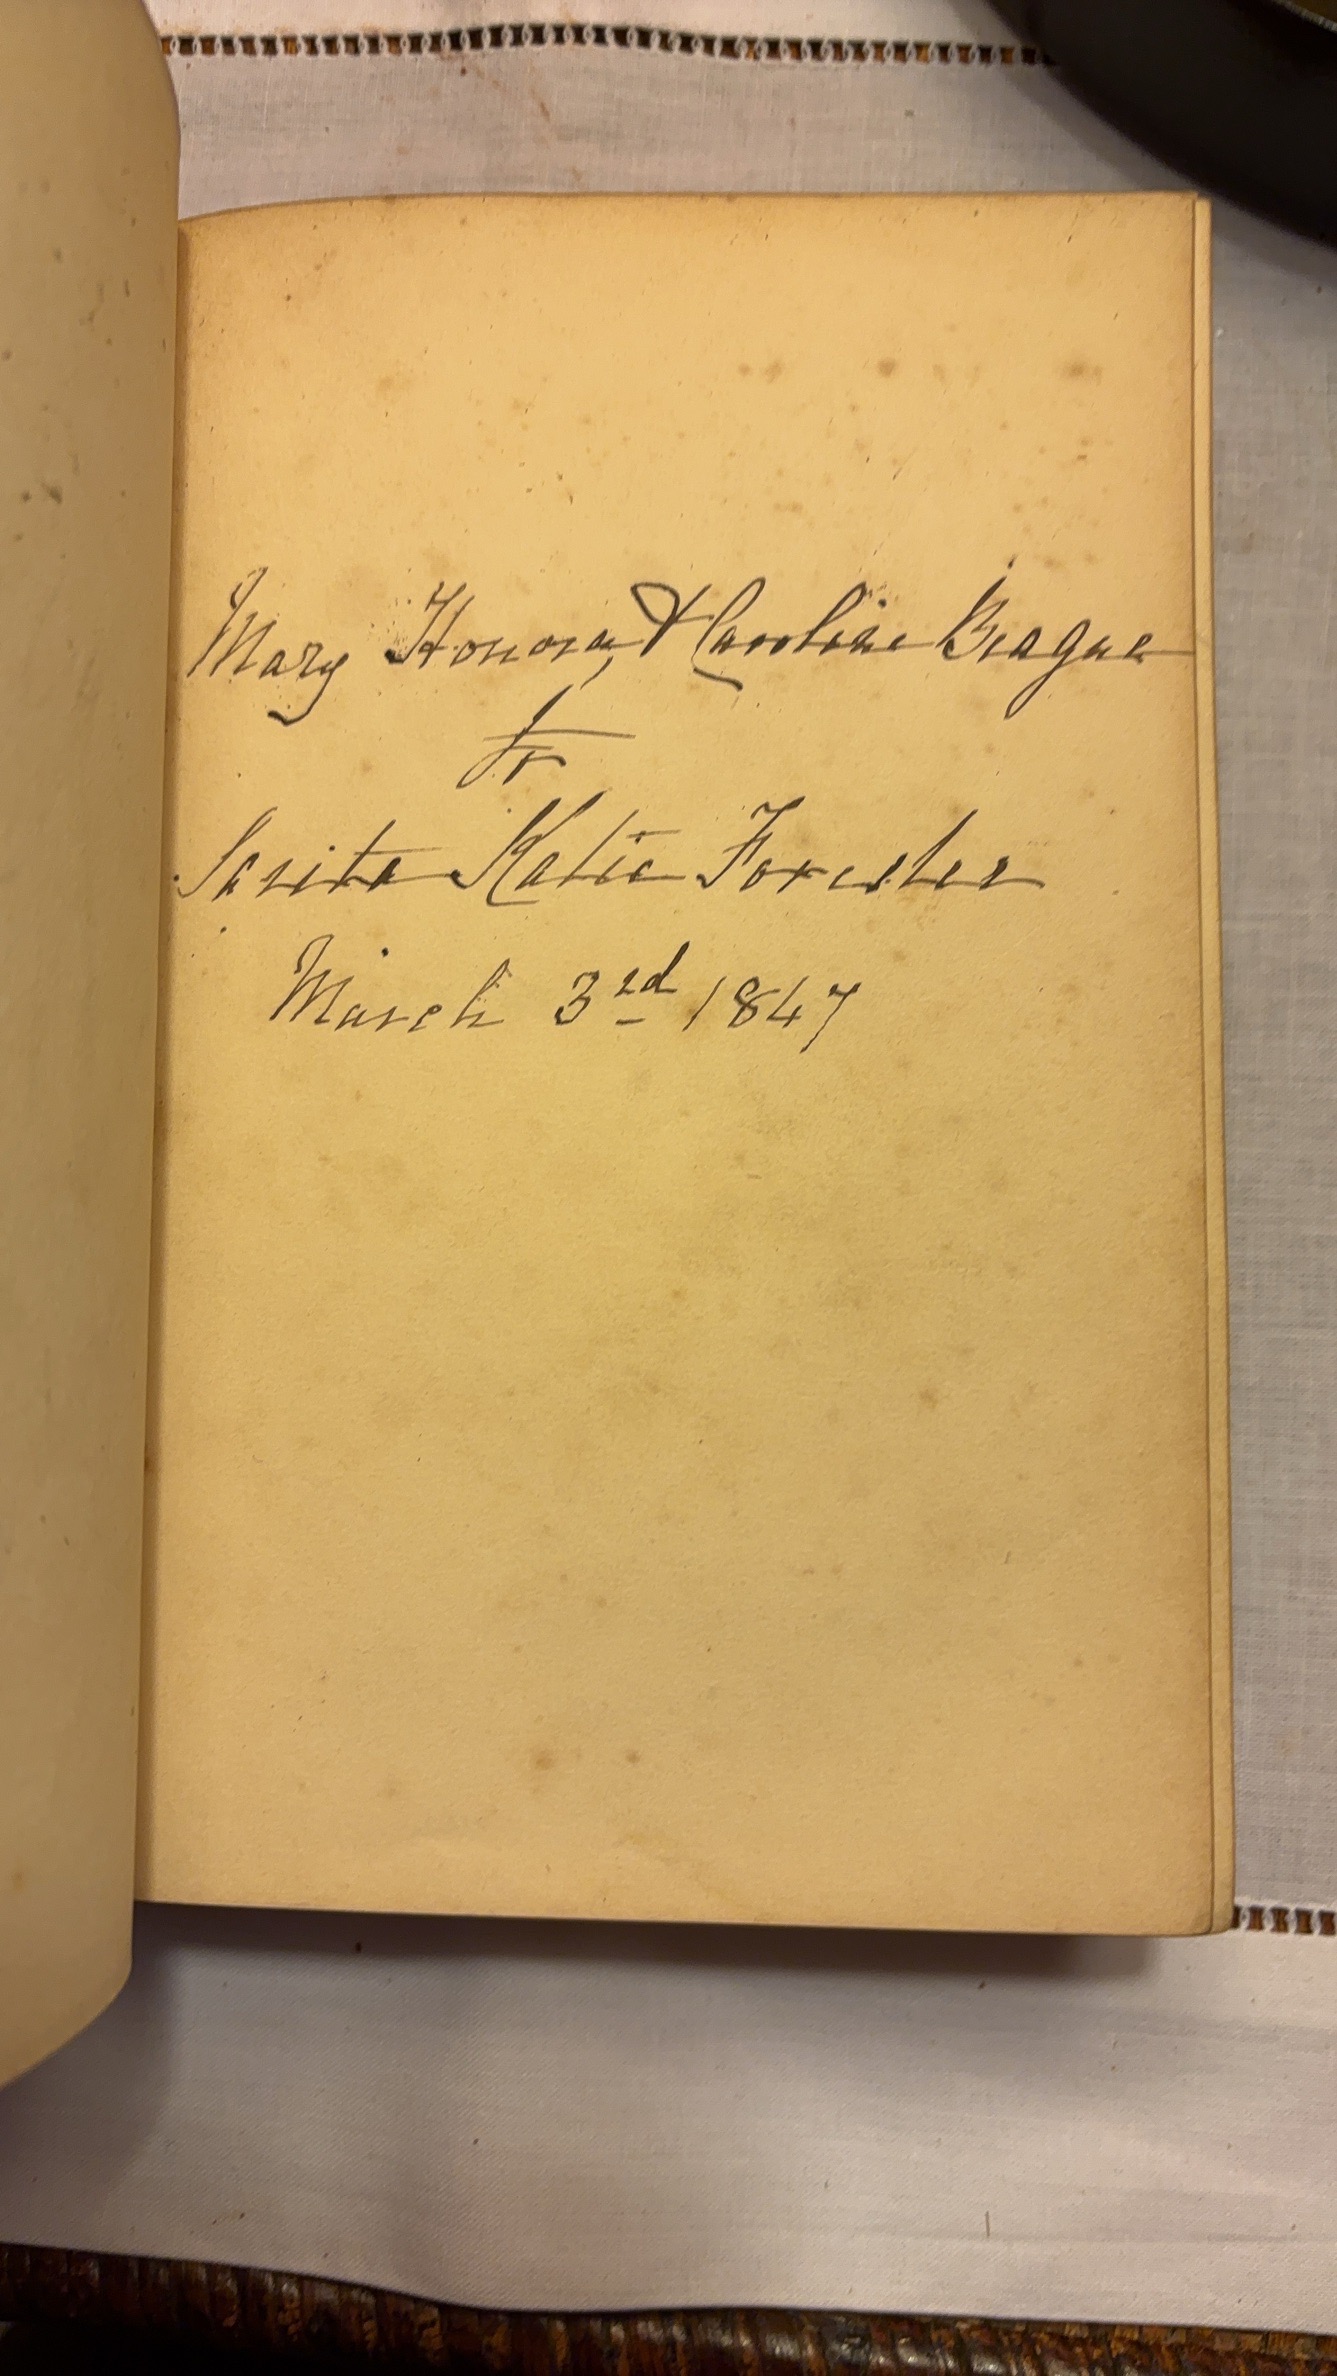 Mary Honora, & Caroline Beague
fr
Sarita Katie Forester
March 3rd 1847